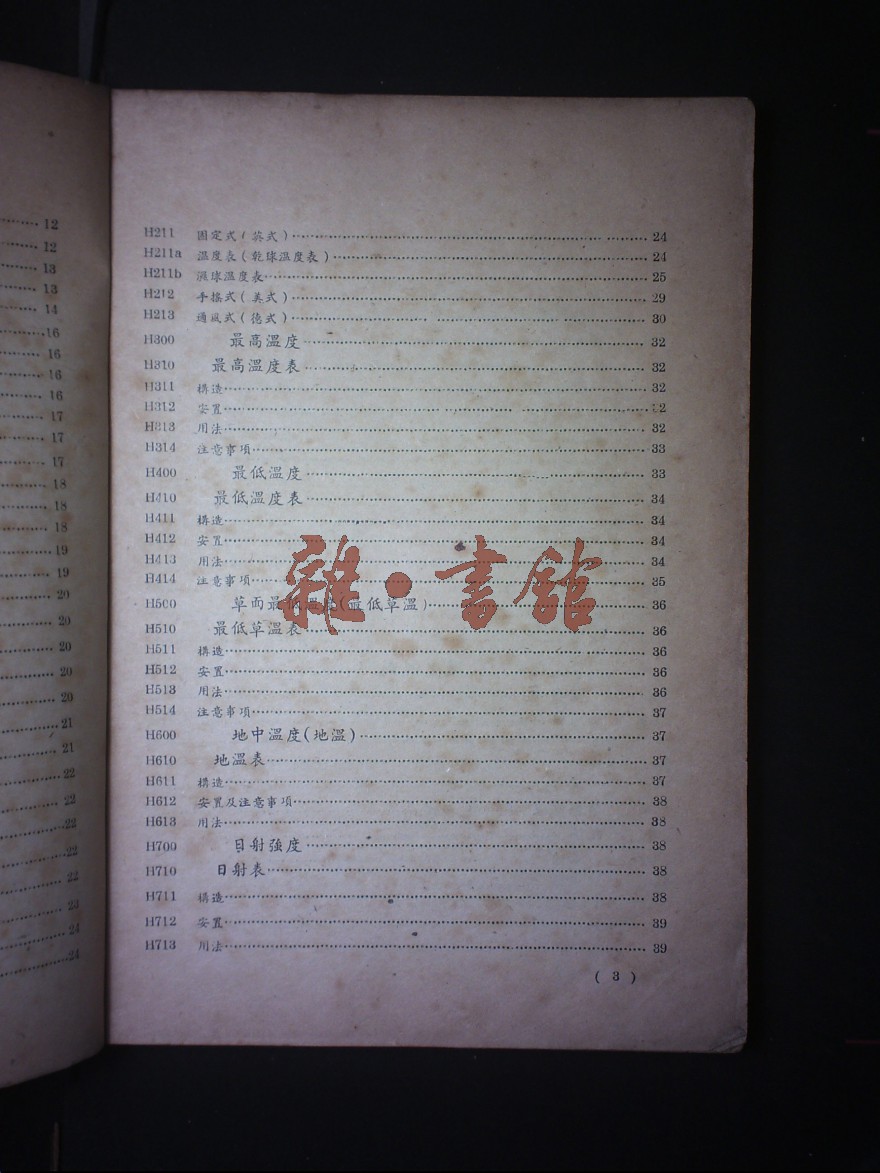 12
12
13
13
14
16
16
16
16
17
17
17
18
18
18
19
19
20
20
20
20
20
21
21
22
22
22
22
22
23
24
24
H211 固定式(英式) 24
H211a 溫度表(乾球溫度表) 24
H211b 濕球溫度表 25
H212 手搖式(美式) 29
H213 通風式(德式) 30
H300 最高溫度 32
H310 最高溫度表 32
H311 構造 32
H312 安置 32
H313 用法 32
H314 注意事項 33
H400 最低溫度 33
H410 最低溫度表 34
H411 構造 34
H412 安置 34
H413 用法 34
H414 注意事項 35
H500 草而最低溫度(最低草溫) 36
H510 最低草溫表 36
H511 構造 36
H512 安置 36
H513 用法 36
H514 注意事項 37
H600 地中溫度(地溫) 37
H610 地溫表 37
H611 構造 37
H612 安置及注意事項 38
H613 用法 38
H700 日射強度 38
H710 日射表 38
H711 構造 38
H712 安置 39
H713 用法 39
(3)
雜·書館